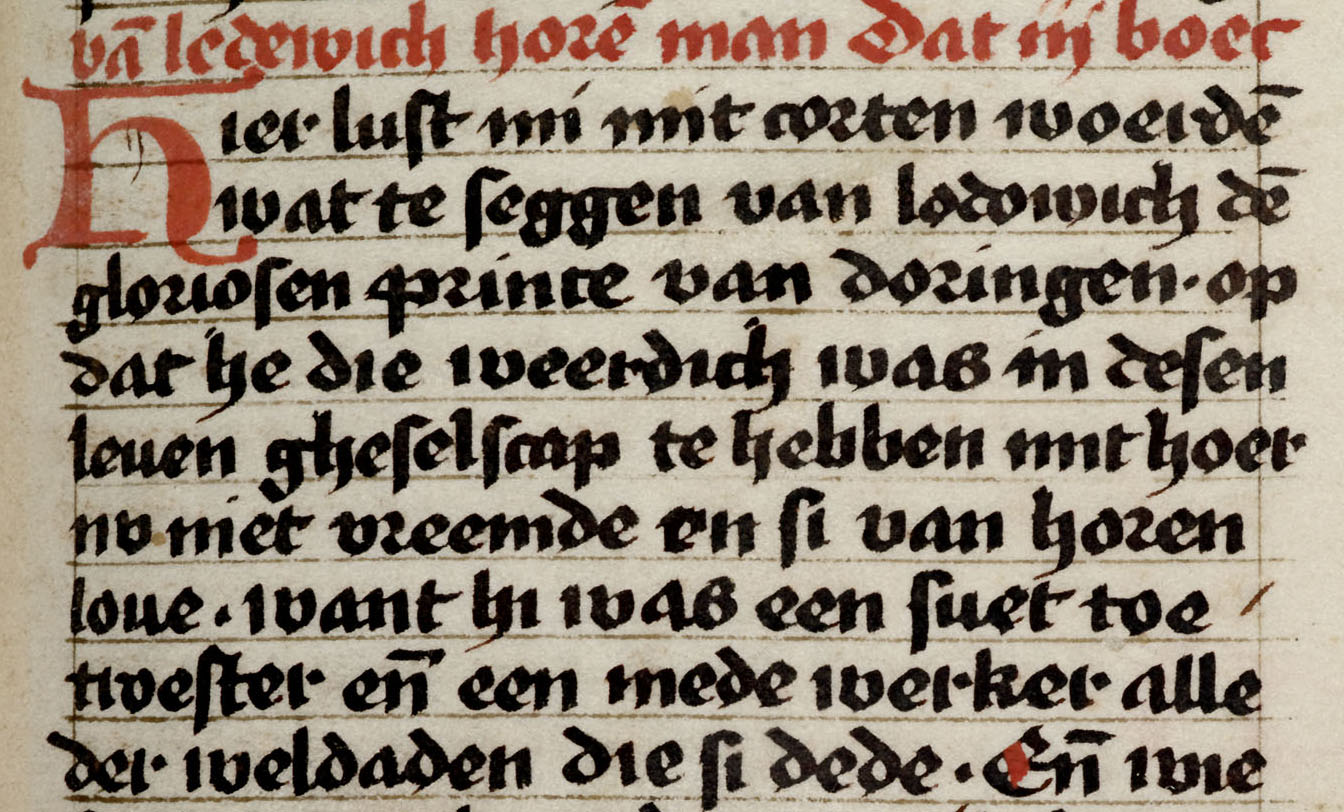 vā lodewich horē man Dat iij boec
Hier lust mi mit corten woerdē
wat te seggen van lodowich dē
gloriosen prince van doringen · op
dat he die weerdich was in desen
leuen gheselscap te hebben mit hoer
nv niet vreemde en si van horen
loue · want hi was een suet toe
twester en̄ een mede werker alle
der weldaden die si dede · En̄ wie